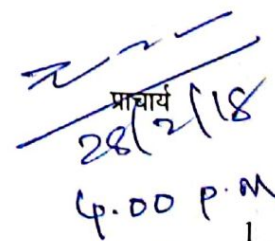 प्राचार्य
28/2/18
4.00 p.m